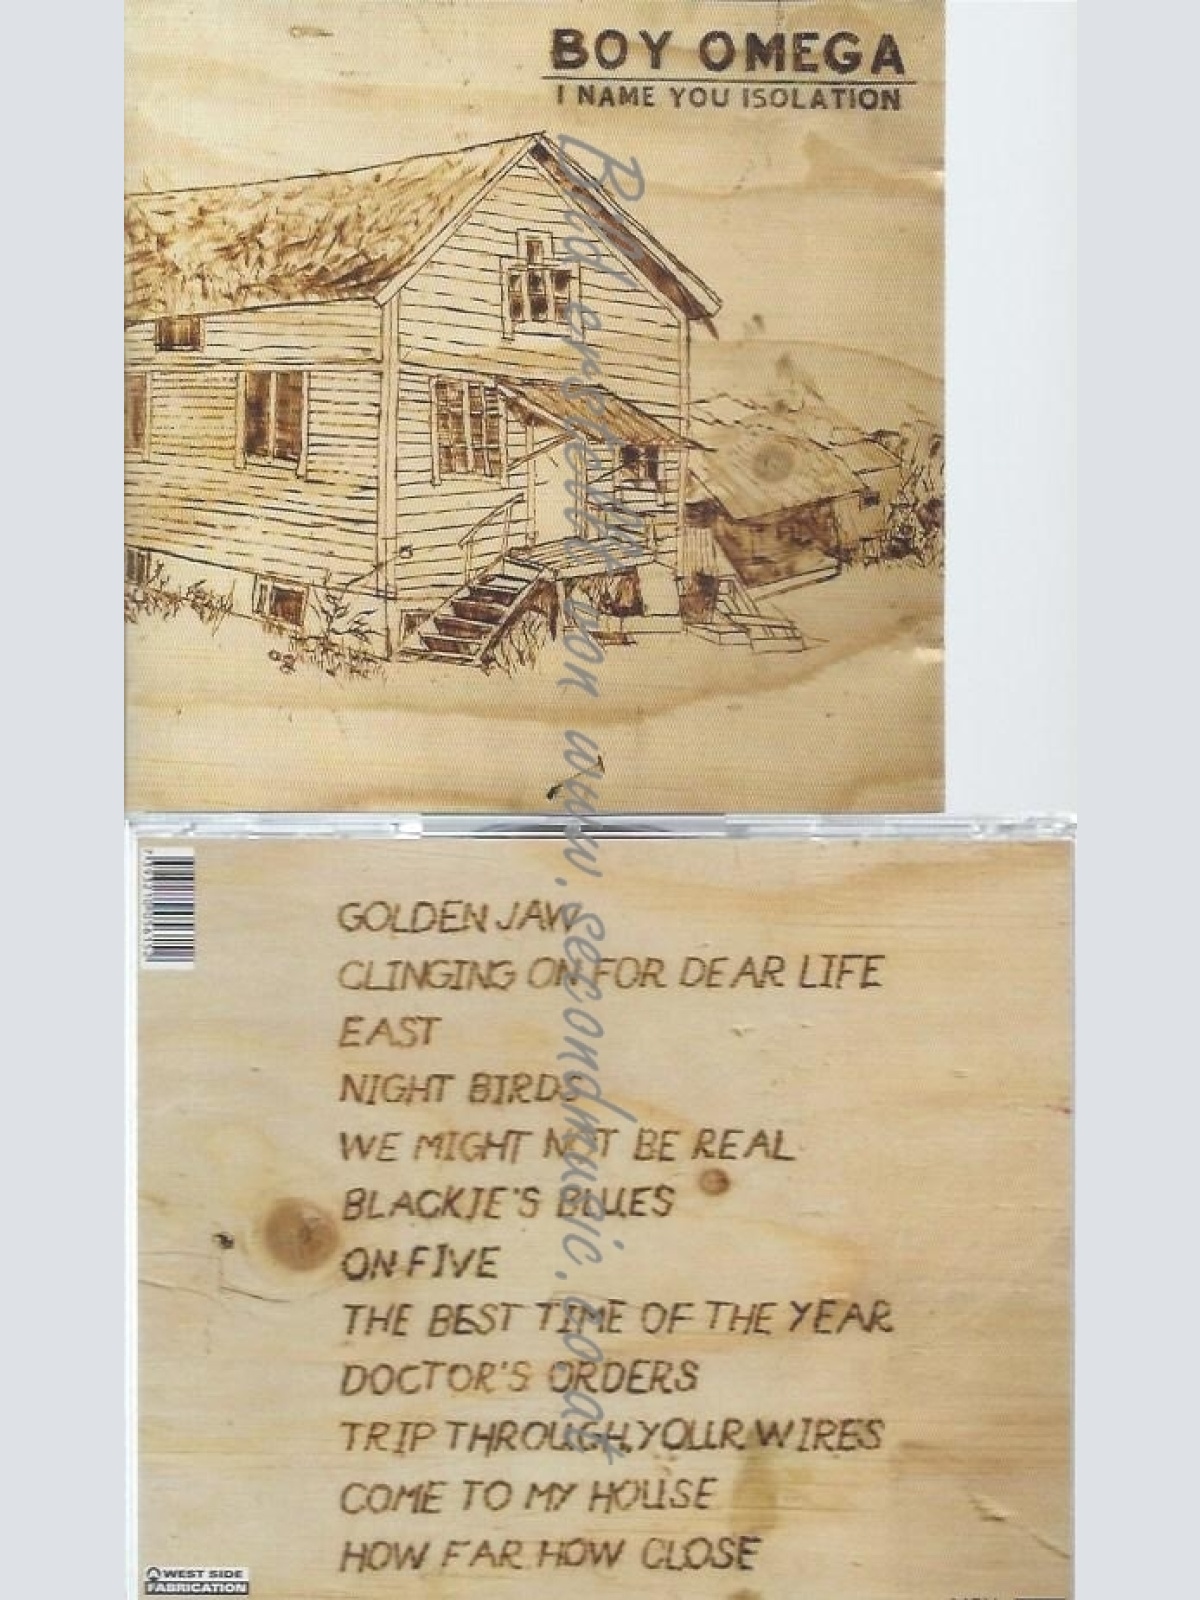 BOY OMEGA
I NAME YOU ISOLATION
Bild erstellt von www.secondmusic.co.at
GOLDEN JAW
CLINGING ON FOR DEAR LIFE
EAST
NIGHT BIRDS
WE MIGHT NOT BE REAL
BLACKIE'S BLUES
ON FIVE
THE BEST TIME OF THE YEAR
DOCTOR'S ORDERS
TRIP THROUGH YOUR WIRES
COME TO MY HOUSE
HOW FAR HOW CLOSE
WEST SIDE
FABRICATION